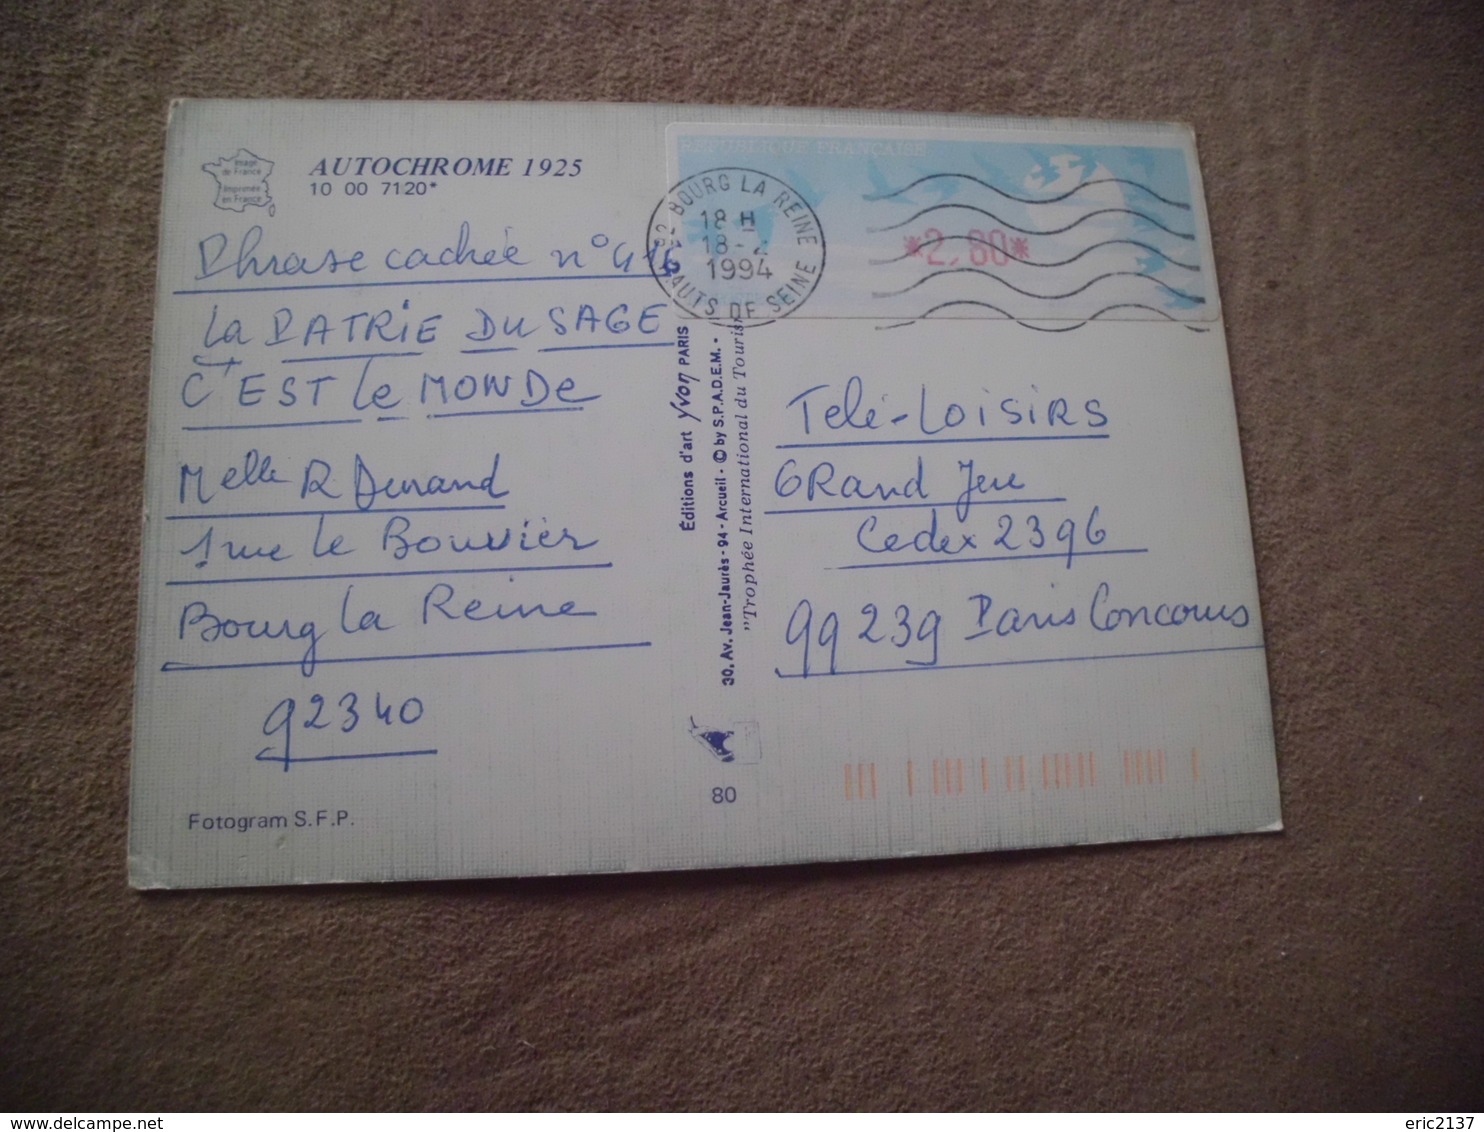 Image
de France
Imprimée
en France
AUTOCHROME 1925
10 00 7120*
Phrase cachée n° 416
La PATRIE DU SAGE
C'EST le MONDE
Melle R Durand
1 rue le Bouvier
Bourg la Reine
92340
Fotogram S.F.P.
Éditions d'art Yvon PARIS
30, Av. Jean-Jaurès - 94 - Arcueil - © by S.P.A.D.E.M. -
"Trophée International du Touris
80
RÉPUBLIQUE FRANÇAISE
*2,80*
92 BOURG LA REINE
18 H
18 - 2
1994
HAUTS DE SEINE
Telé-LOISIRS
GRand Jeu
Cedex 2396
99239 Paris Concours
delcampe.net
eric2137